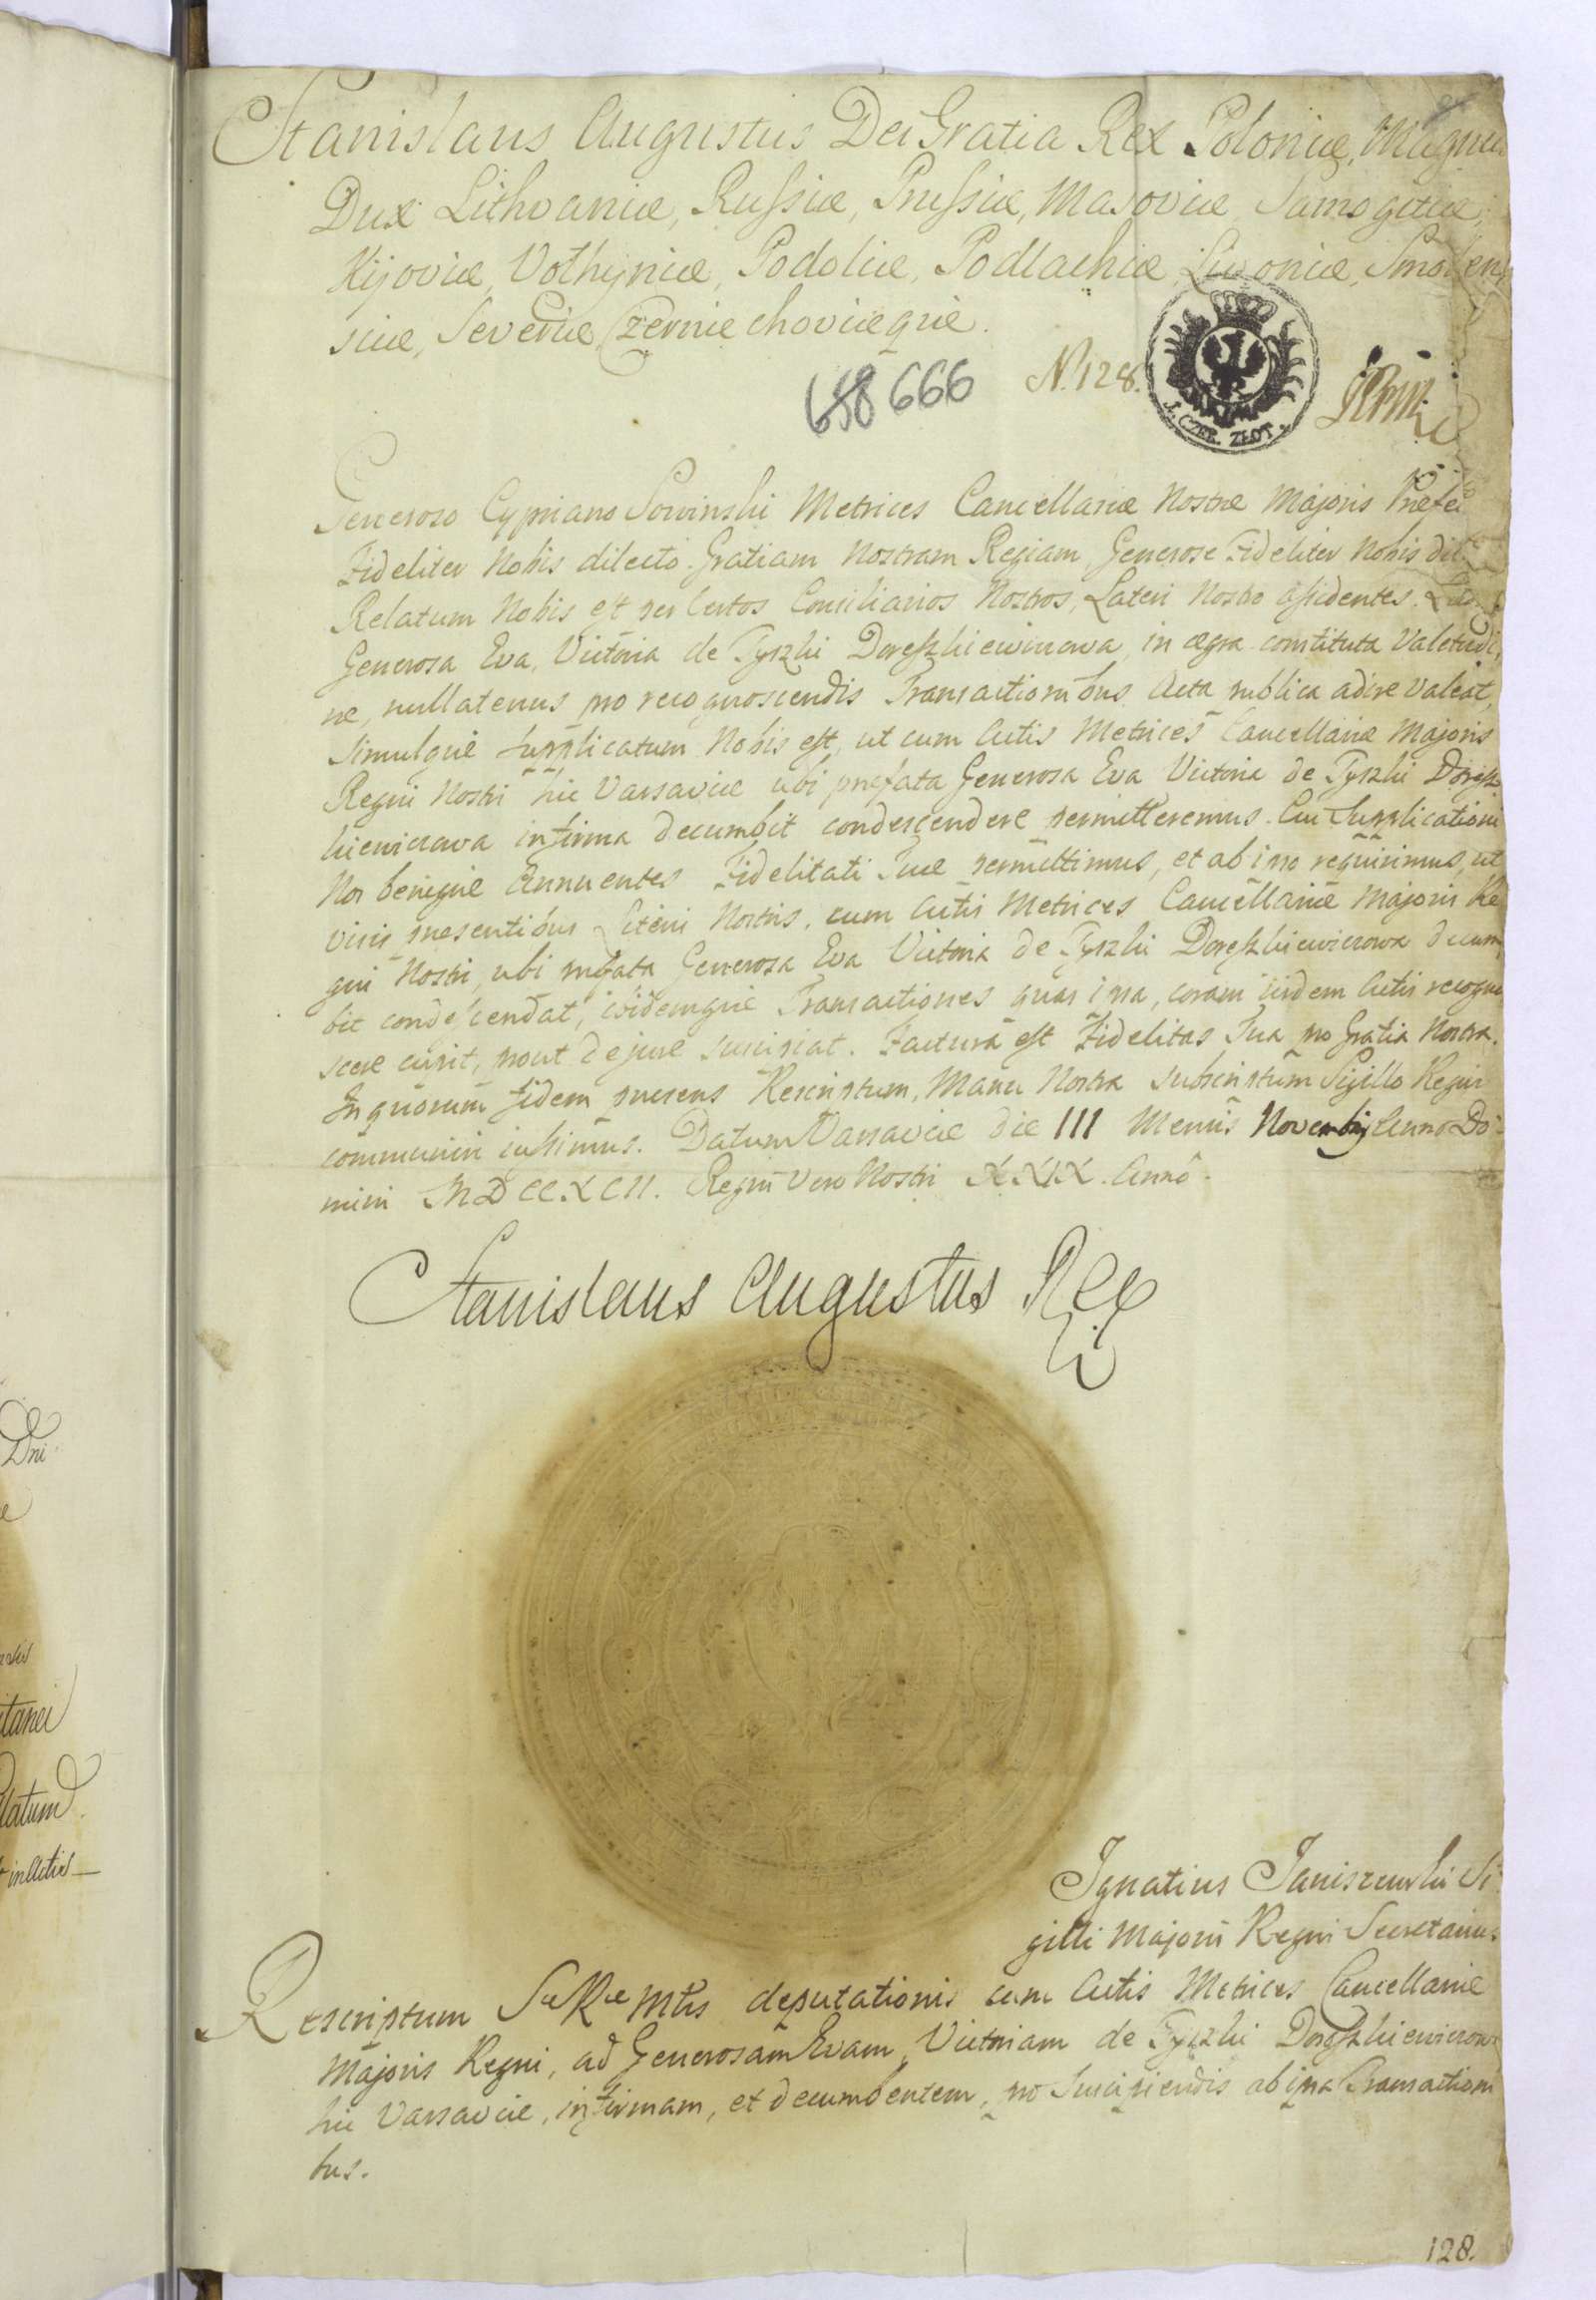 Stanislaus Augustus Dei Gratia Rex Poloniæ, Magnus
Dux Lithvaniæ, Russiæ, Prussiæ, Masoviæ, Samogitiæ,
Kijoviæ, Volhyniæ, Podoliæ, Podlachiæ, Livoniæ, Smolen
sciæ, Severiæ, Czerniechoviæque.
658 666 N. 128.
1. CZER. ZŁOT.
Generoso Cypriano Sowinski Metrices Cancellariæ Nostræ Majoris Præfec
Fideliter Nobis dilecto. Gratiam Nostram Regiam. Generose Fideliter Nobis dil
Relatum Nobis est per Certos Consiliarios Nostros, Lateri Nostro assidentes.
Generosa Eva, Victoria de Tyszki Doreszkiewiczowa, in ægra constituta Valetudi
ne, nullatenus pro recognoscendis Transactionibus Acta publica adire valeat,
Simulque Supplicatum Nobis est, ut cum Actis Metrices Cancellariæ Majoris
Regni Nostri hic Varsaviæ ubi præfata Generosa Eva Victoria de Tyszki Doresz
kiewiczowa infirma decumbit condescendere permitteremus. Cui Supplicationi
Nos benigne Annuentes Fidelitati Tuæ permittimus, et ab ipso requirimus, ut
visis præsentibus Literis Nostris, cum Actis Metrices Cancellariæ Majoris Re
gni Nostri, ubi præfata Generosa Eva Victoria de Tyszki Doreszkiewiczowa decum
bit condescendat, ibidemque Transactiones quas ipsa, coram iisdem Actis recogno
scere cupit, prout de jure suscipiat. Factura est Fidelitas Tua pro Gratia Nostra.
In quorum fidem præsens Rescriptum, Manu Nostra subscriptum Sigillo Regni
communiri jussimus. Datum Varsaviæ die III Mensis Novembris Anno Do
mini MDCCXCII. Regni Vero Nostri XXIX. Anno.
Stanislaus Augustus Rex
Ignatius Janiszewski Si
gilli Majoris Regni Secretarius
Rescriptum Sæ Ræ Mtis deputationis cum Actis Metrices Cancellariæ
Majoris Regni, ad Generosam Evam Victoriam de Tyszki Doreszkiewiczowa
hic Varsaviæ, infirmam, et decumbentem, pro Suscipiendis ab ipsa Transactioni
bus.
128.
Dni
itanei
latum
inActis